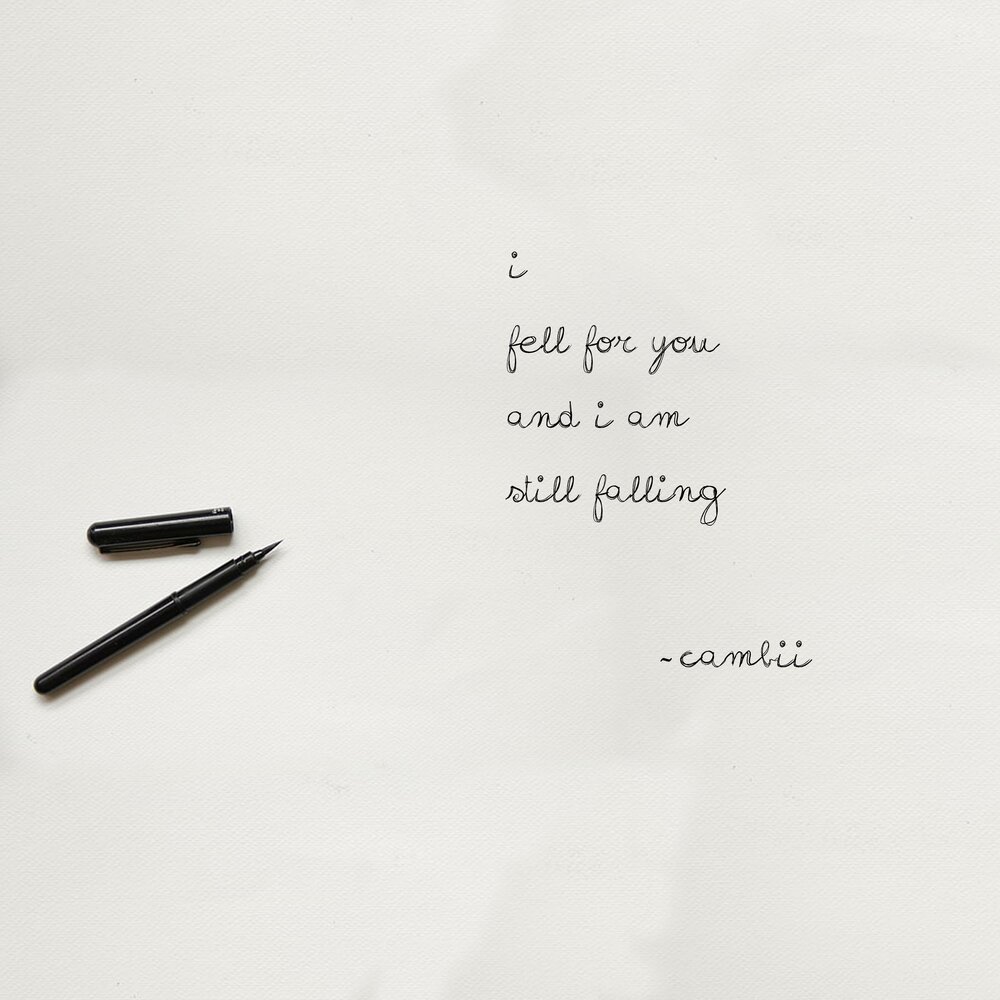 i
fell for you
and i am
still falling
~cambii